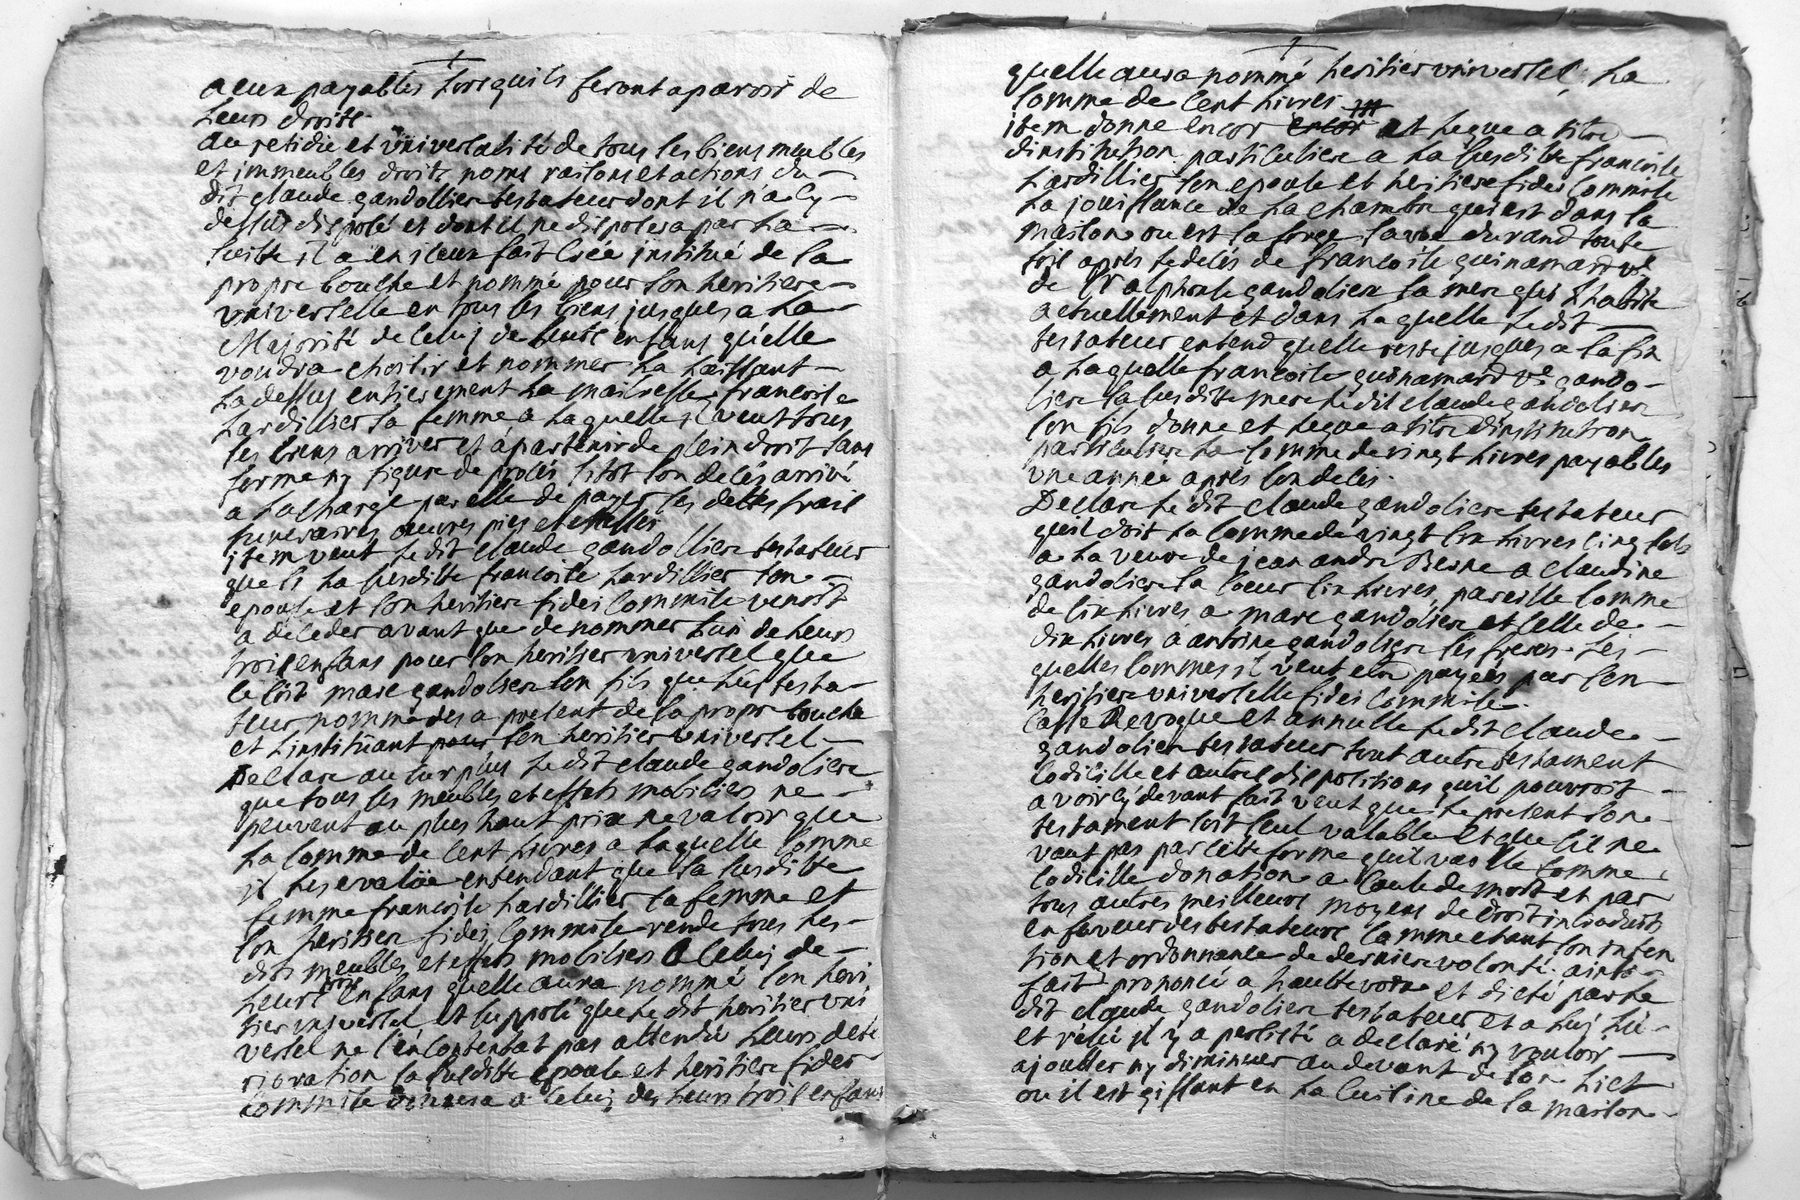 a eux payables lors quils seront aparoir de
leurs droits.
Au residu et universalité de tous les biens meubles
et immeubles droits noms raisons et actions du
dit claude gandolliere testateur dont il n'a cy
dessus disposé et dont il ne disposera par la
suitte il a en iceux fait créé institué de sa
propre bouche et nommé pour son heritiere
universelle en tous ses biens jusques a la
Majorité de celuj de leurs enfans qu'elle
voudra choisir et nommer la laissant
la dessus entierement la maitresse francoise
hardillier sa femme a laquelle il veut tous
ses biens arriver et apartenir de plein droit sans
forme ny figure de procès sitot son decés arrivé
a la charge par elle de payer ses dettes frais
funeraires œuvres pies et
item veut le dit claude gandolliere testateur
que si la susditte francoise hardillier son
epouse et son heritiere fidei commise venoit
a deceder avant que de nommer l'un de leurs
trois enfans pour son heritier universel que
ce soit marc gandoliere son fils que luy testa-
teur nomme des a present de sa propre bouche
et l'instituant pour son heritier universel
Declare au surplus le dit claude gandoliere
que tous ses meubles et effets mobiliers ne
peuvent au plus haut prix ne valoir que
la somme de cent livres a laquelle somme
il les evalüe entendant que sa susditte
femme francoise hardillier sa femme et
son heritiere fidej commise rende tous les
dits meubles et effets mobiliers a celuj de
leurs trois enfans quelle aura nommé son heri
tier universel, et supposé que le dit heritier uni
versel ne s'en contentat pas attendu leurs dete
rioration sa susditte epouse et heritiere fidei
commise donnera a celuj des leurs trois enfans
quelle aura nommé heritier universel, la
somme de cent livres.
item donne encor et legue a titre
dinstitution particuliere a la susditte francoise
hardillier son epouse et heritiere fidei commise
la jouissance de la chambre qui est dans sa
maison ou est la forge durand toute
fois après le deces de francoise guinamard vᵉ
de Sʳ alphonse gandoliere sa mere qui l'habite
actuellement et dans laquelle le dit
testateur entend quelle reste jusques a sa fin
a laquelle francoise guinamard vᵉ gando-
liere sa susditte mere le dit claude gandoliere
son fils donne et legue a titre dinstitution
particuliere la somme de vingt livres payables
une année après son deces.
Declare le dit claude gandoliere testateur
quil doit la somme de vingt six livres cinq sols
a la veuve de jean andre Besne a claudine
gandoliere sa sœur six livres, pareille somme
de six livres a marc gandoliere et celle de
dix livres a antoine gandoliere ses freres. les-
quelles sommes il veut etre payées par son
heritiere universelle fidei commise.
Casse Revoque et annulle le dit claude
gandoliere testateur tout autre testament
codicille et autres dispositions quil pouvroit
avoir cy devant fait veut que le present son
testament soit seul valable et que s'il ne
vaut pas par cette forme quil vaille comme
codicille donation a cause de mort et par
tous autres meilleurs moyens de droit introduits
en faveur des testateurs comme etant son inten
tion et ordonnance de derniere volonté. ainsi
fait prononcé a haulte voix et dicté par le
dit claude gandoliere testateur et a luj lu
et relu il y a persisté a declaré ny vouloir
ajoutter ny diminuer au devant de son lict
ou il est gissant en la cuisine de sa maison